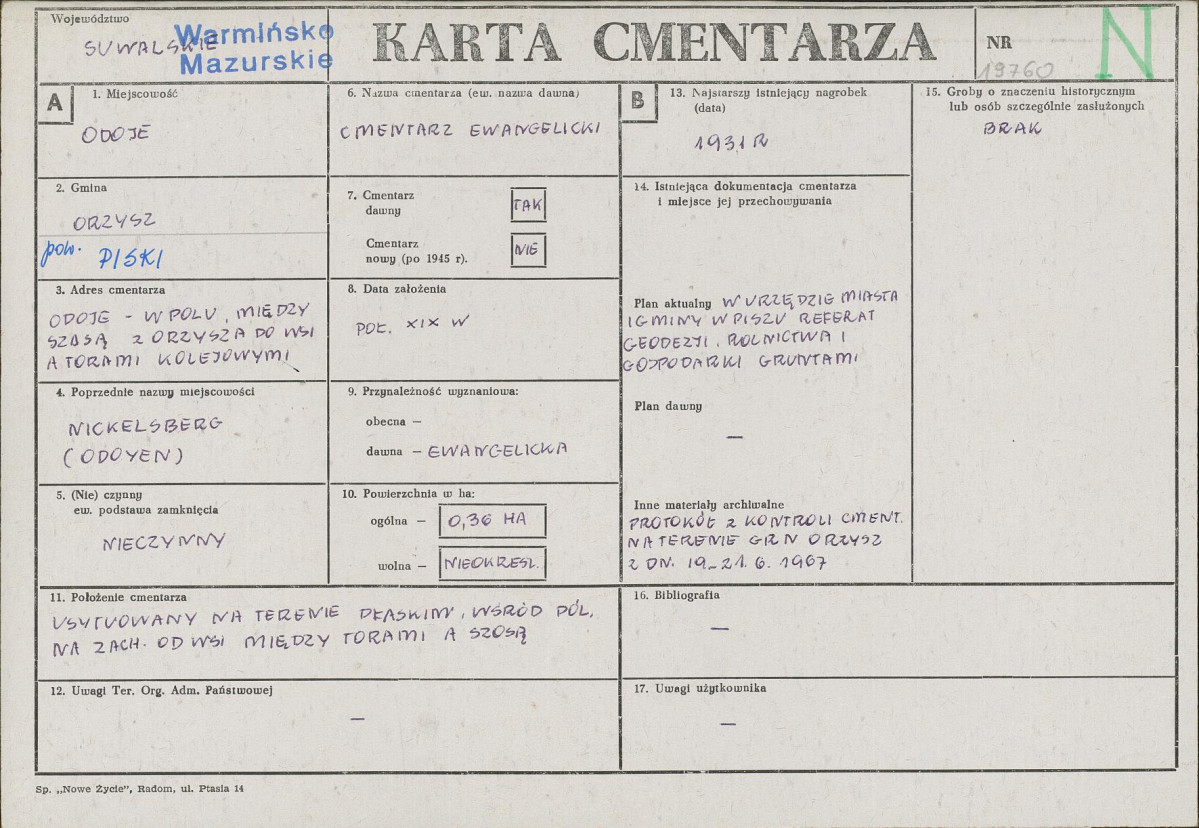 Województwo
SUWALSKIE
Warmińsko
Mazurskie
KARTA CMENTARZA
NR
19760
N
A
1. Miejscowość
ODOJE
2. Gmina
ORZYSZ
pow. PISKI
3. Adres cmentarza
ODOJE - W POLU, MIĘDZY
SZOSĄ Z ORZYSZA DO WSI
A TORAMI KOLEJOWYMI
4. Poprzednie nazwy miejscowości
NICKELSBERG
(ODOYEN)
5. (Nie) czynny
ew. podstawa zamknięcia
NIECZYNNY
6. Nazwa cmentarza (ew. nazwa dawna)
CMENTARZ EWANGELICKI
7. Cmentarz
dawny
TAK
Cmentarz
nowy (po 1945 r).
NIE
8. Data założenia
POŁ. XIX W
9. Przynależność wyznaniowa:
obecna —
dawna — EWANGELICKA
10. Powierzchnia w ha:
ogólna — 0,36 HA
wolna — NIEOKREŚL.
11. Położenie cmentarza
USYTUOWANY NA TERENIE PŁASKIM, WŚRÓD PÓL,
NA ZACH. OD WSI MIĘDZY TORAMI A SZOSĄ
12. Uwagi Ter. Org. Adm. Państwowej
—
B
13. Najstarszy istniejący nagrobek
(data)
1931 R
14. Istniejąca dokumentacja cmentarza
i miejsce jej przechowywania
Plan aktualny W URZĘDZIE MIASTA
I GMINY W PISZU REFERAT
GEODEZJI, ROLNICTWA I
GOSPODARKI GRUNTAMI
Plan dawny
—
Inne materiały archiwalne
PROTOKÓŁ Z KONTROLI CMENT.
NA TERENIE GRN ORZYSZ
Z DN. 19-21.6.1967
15. Groby o znaczeniu historycznym
lub osób szczególnie zasłużonych
BRAK
16. Bibliografia
—
17. Uwagi użytkownika
—
Sp. „Nowe Życie", Radom, ul. Ptasia 14